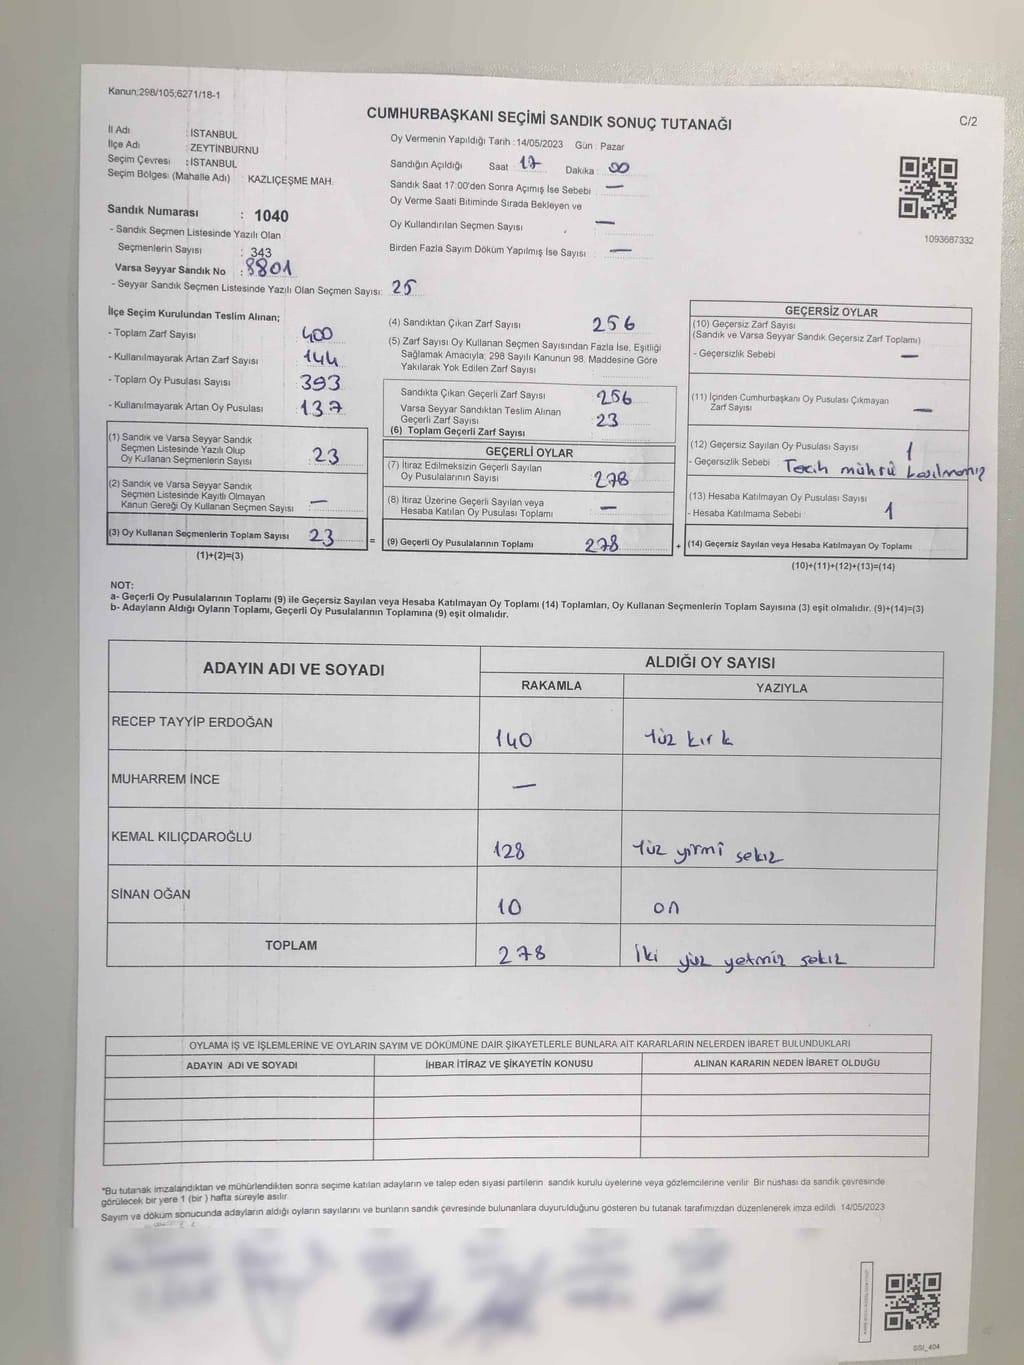 Kanun:298/105;6271/18-1
CUMHURBAŞKANI SEÇİMİ SANDIK SONUÇ TUTANAĞI
C/2
İl Adı : İSTANBUL
İlçe Adı : ZEYTİNBURNU
Seçim Çevresi : İSTANBUL
Seçim Bölgesi (Mahalle Adı) : KAZLIÇEŞME MAH.
Sandık Numarası : 1040
- Sandık Seçmen Listesinde Yazılı Olan
Seçmenlerin Sayısı : 343
Varsa Seyyar Sandık No : 8801
- Seyyar Sandık Seçmen Listesinde Yazılı Olan Seçmen Sayısı: 25
Oy Vermenin Yapıldığı Tarih : 14/05/2023 Gün : Pazar
Sandığın Açıldığı Saat : 17 Dakika : 00
Sandık Saat 17:00'den Sonra Açımış İse Sebebi : —
Oy Verme Saati Bitiminde Sırada Bekleyen ve
Oy Kullandırılan Seçmen Sayısı : —
Birden Fazla Sayım Döküm Yapılmış İse Sayısı : —
1093687332
İlçe Seçim Kurulundan Teslim Alınan;
- Toplam Zarf Sayısı : 400
- Kullanılmayarak Artan Zarf Sayısı : 144
- Toplam Oy Pusulası Sayısı : 393
- Kullanılmayarak Artan Oy Pusulası : 137
(1) Sandık ve Varsa Seyyar Sandık
Seçmen Listesinde Yazılı Olup
Oy Kullanan Seçmenlerin Sayısı : 23
(2) Sandık ve Varsa Seyyar Sandık
Seçmen Listesinde Kayıtlı Olmayan
Kanun Gereği Oy Kullanan Seçmen Sayısı : —
(3) Oy Kullanan Seçmenlerin Toplam Sayısı 23
(1)+(2)=(3)
=
(4) Sandıktan Çıkan Zarf Sayısı : 256
(5) Zarf Sayısı Oy Kullanan Seçmen Sayısından Fazla İse, Eşitliği
Sağlamak Amacıyla; 298 Sayılı Kanunun 98. Maddesine Göre
Yakılarak Yok Edilen Zarf Sayısı :
Sandıkta Çıkan Geçerli Zarf Sayısı : 256
Varsa Seyyar Sandıktan Teslim Alınan
Geçerli Zarf Sayısı : 23
(6) Toplam Geçerli Zarf Sayısı
GEÇERLİ OYLAR
(7) İtiraz Edilmeksizin Geçerli Sayılan
Oy Pusulalarının Sayısı : 278
(8) İtiraz Üzerine Geçerli Sayılan veya
Hesaba Katılan Oy Pusulası Toplamı : —
(9) Geçerli Oy Pusulalarının Toplamı : 278
+
GEÇERSİZ OYLAR
(10) Geçersiz Zarf Sayısı
(Sandık ve Varsa Seyyar Sandık Geçersiz Zarf Toplamı)
- Geçersizlik Sebebi : —
(11) İçinden Cumhurbaşkanı Oy Pusulası Çıkmayan
Zarf Sayısı : —
(12) Geçersiz Sayılan Oy Pusulası Sayısı : 1
- Geçersizlik Sebebi : Tercih mührü basılmamış
(13) Hesaba Katılmayan Oy Pusulası Sayısı
- Hesaba Katılmama Sebebi : 1
(14) Geçersiz Sayılan veya Hesaba Katılmayan Oy Toplamı :
(10)+(11)+(12)+(13)=(14)
NOT:
a- Geçerli Oy Pusulalarının Toplamı (9) ile Geçersiz Sayılan veya Hesaba Katılmayan Oy Toplamı (14) Toplamları, Oy Kullanan Seçmenlerin Toplam Sayısına (3) eşit olmalıdır. (9)+(14)=(3)
b- Adayların Aldığı Oyların Toplamı, Geçerli Oy Pusulalarının Toplamına (9) eşit olmalıdır.
ADAYIN ADI VE SOYADI
ALDIĞI OY SAYISI
RAKAMLA YAZIYLA
RECEP TAYYİP ERDOĞAN 140 Yüz kırk
MUHARREM İNCE —
KEMAL KILIÇDAROĞLU 128 Yüz yirmi sekiz
SİNAN OĞAN 10 on
TOPLAM 278 İki yüz yetmiş sekiz
OYLAMA İŞ VE İŞLEMLERİNE VE OYLARIN SAYIM VE DÖKÜMÜNE DAİR ŞİKAYETLERLE BUNLARA AİT KARARLARIN NELERDEN İBARET BULUNDUKLARI
ADAYIN ADI VE SOYADI İHBAR İTİRAZ VE ŞİKAYETİN KONUSU ALINAN KARARIN NEDEN İBARET OLDUĞU
*Bu tutanak imzalandıktan ve mühürlendikten sonra seçime katılan adayların ve talep eden siyasi partilerin sandık kurulu üyelerine veya gözlemcilerine verilir. Bir nüshası da sandık çevresinde
görülecek bir yere 1 (bir ) hafta süreyle asılır.
Sayım ve döküm sonucunda adayların aldığı oyların sayılarını ve bunların sandık çevresinde bulunanlara duyurulduğunu gösteren bu tutanak tarafımızdan düzenlenerek imza edildi. 14/05/2023